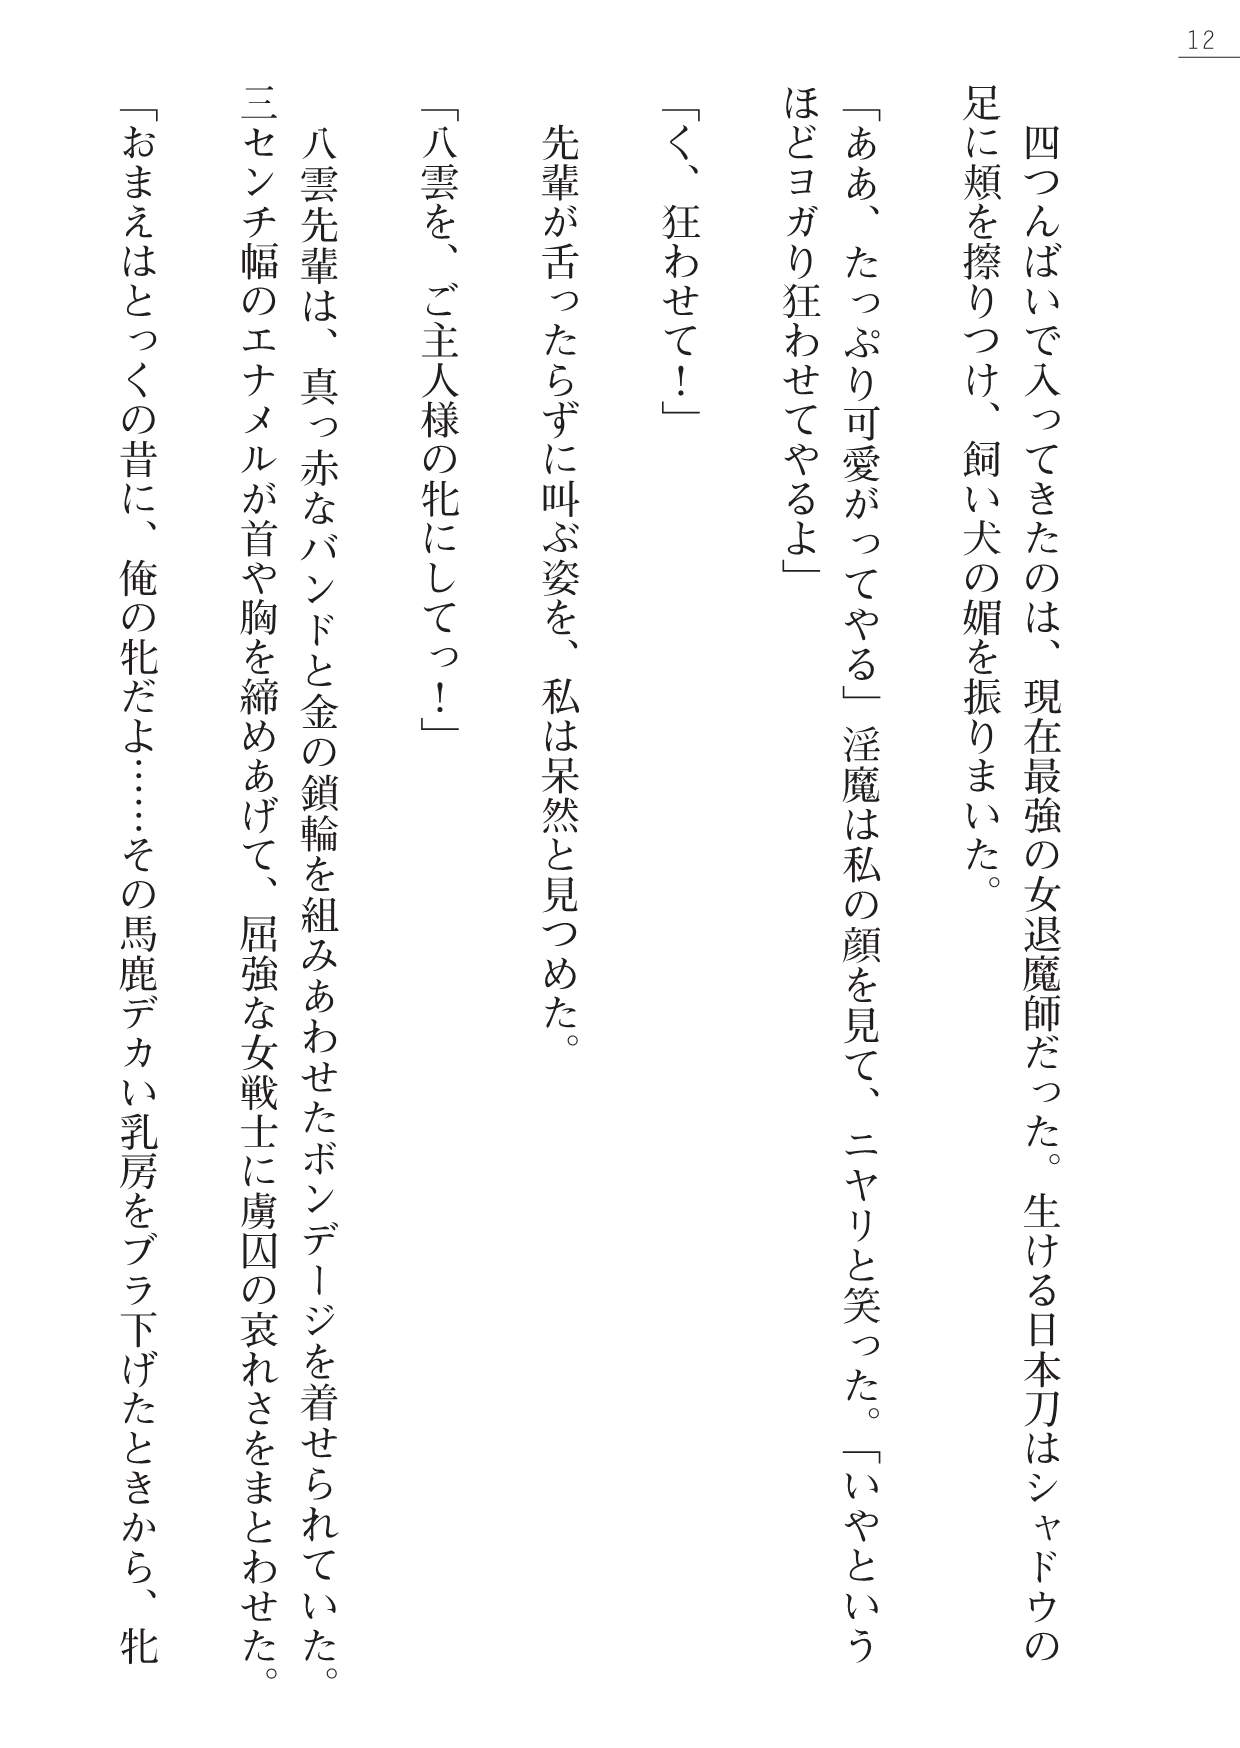 12
四つんばいで入ってきたのは、現在最強の女退魔師だった。生ける日本刀はシャドウの
足に頬を擦りつけ、飼い犬の媚を振りまいた。
「ああ、たっぷり可愛がってやる」淫魔は私の顔を見て、ニヤリと笑った。「いやという
ほどヨガり狂わせてやるよ」
「く、狂わせて！」
先輩が舌ったらずに叫ぶ姿を、私は呆然と見つめた。
「八雲を、ご主人様の牝にしてっ！」
八雲先輩は、真っ赤なバンドと金の鎖輪を組みあわせたボンデージを着せられていた。
三センチ幅のエナメルが首や胸を締めあげて、屈強な女戦士に虜囚の哀れさをまとわせた。
「おまえはとっくの昔に、俺の牝だよ……その馬鹿デカい乳房をブラ下げたときから、牝